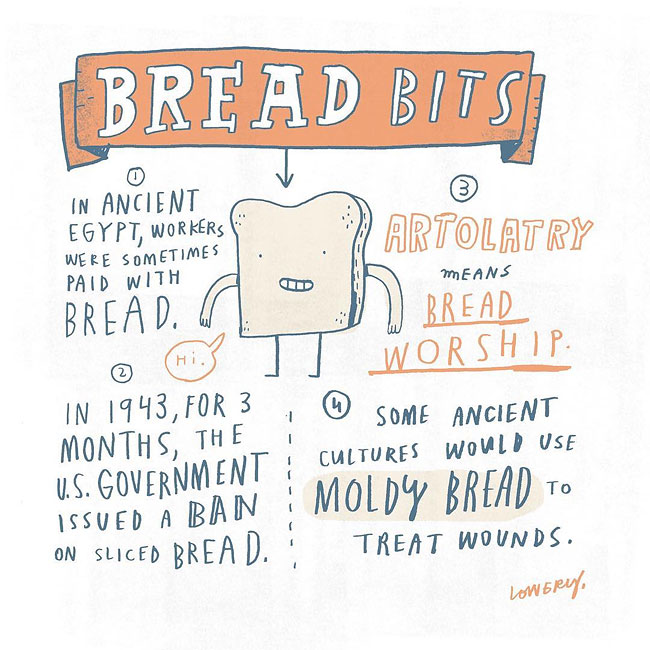 BREAD BITS
1
IN ANCIENT
EGYPT, WORKERS
WERE SOMETIMES
PAID WITH
BREAD.
Hi.
2
IN 1943, FOR 3
MONTHS, THE
U.S. GOVERNMENT
ISSUED A BAN
ON SLICED BREAD.
3
ARTOLATRY
MEANS
BREAD
WORSHIP.
4
SOME ANCIENT
CULTURES WOULD USE
MOLDY BREAD TO
TREAT WOUNDS.
LOWERY.